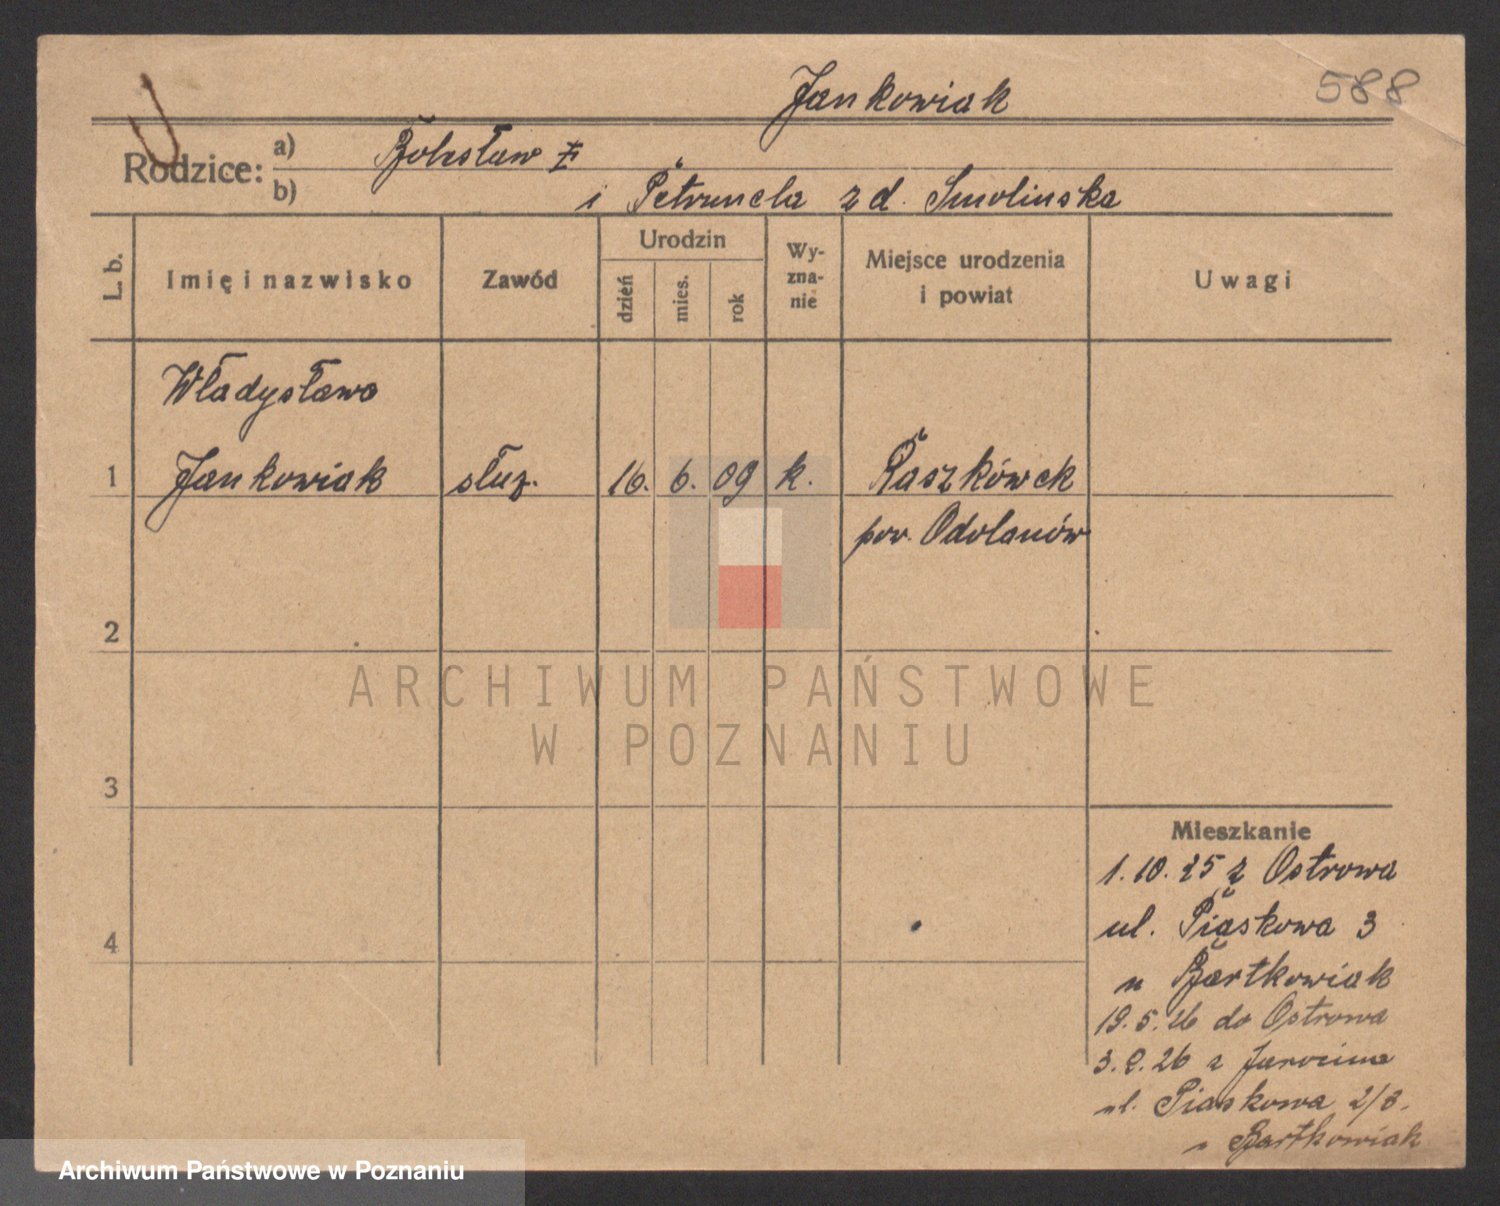 Jankowiak
588
Rodzice:
a) Bolesław
b) i Petronela z d. Smolinska
L. b.
Imię i nazwisko
Zawód
Urodzin
dzień
mies.
rok
Wy-
zna-
nie
Miejsce urodzenia
i powiat
Uwagi
Władysława
1 Jankowiak służ. 16. 6. 09 k. Raszkówek
pow. Odolanów
2
ARCHIWUM PAŃSTWOWE
W POZNANIU
3
Mieszkanie
1.10.25 z Ostrowa
4
ul. Piaskowa 3
u Bartkowiak
19.5.26 do Ostrowa
26 z Jarocina
ul. Piaskowa 2/3.
u Bartkowiak
Archiwum Państwowe w Poznaniu